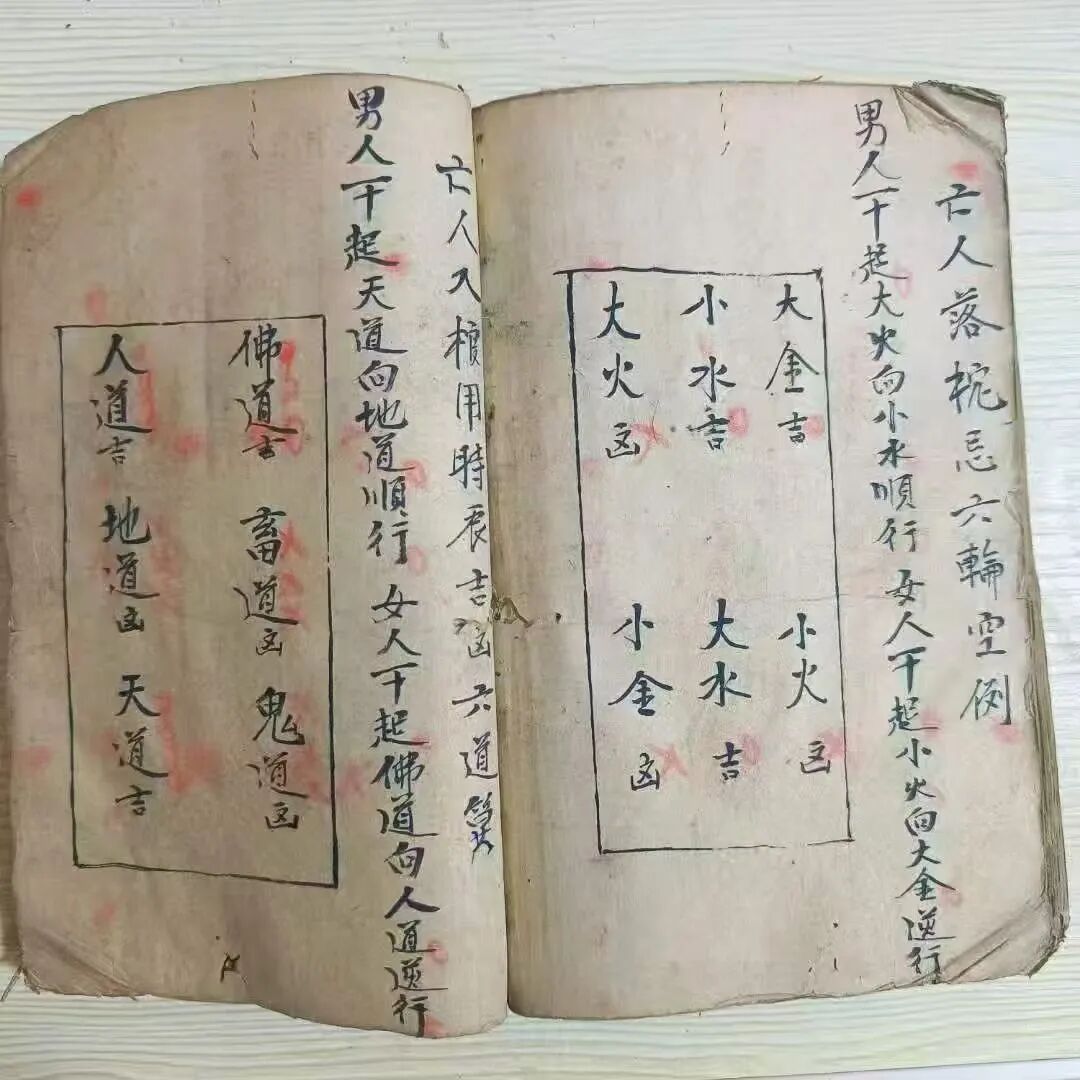 亡人落枕忌六輪空例
男人一十起大火向小水順行 女人一十起小火向大金逆行
大金吉 小火凶
小水吉 大水吉
大火凶 小金凶
亡人入櫃用時辰吉凶六道算
男人一十起天道向地道順行 女人一十起佛道向人道逆行
佛道吉 畜道凶 鬼道凶
人道吉 地道凶 天道吉